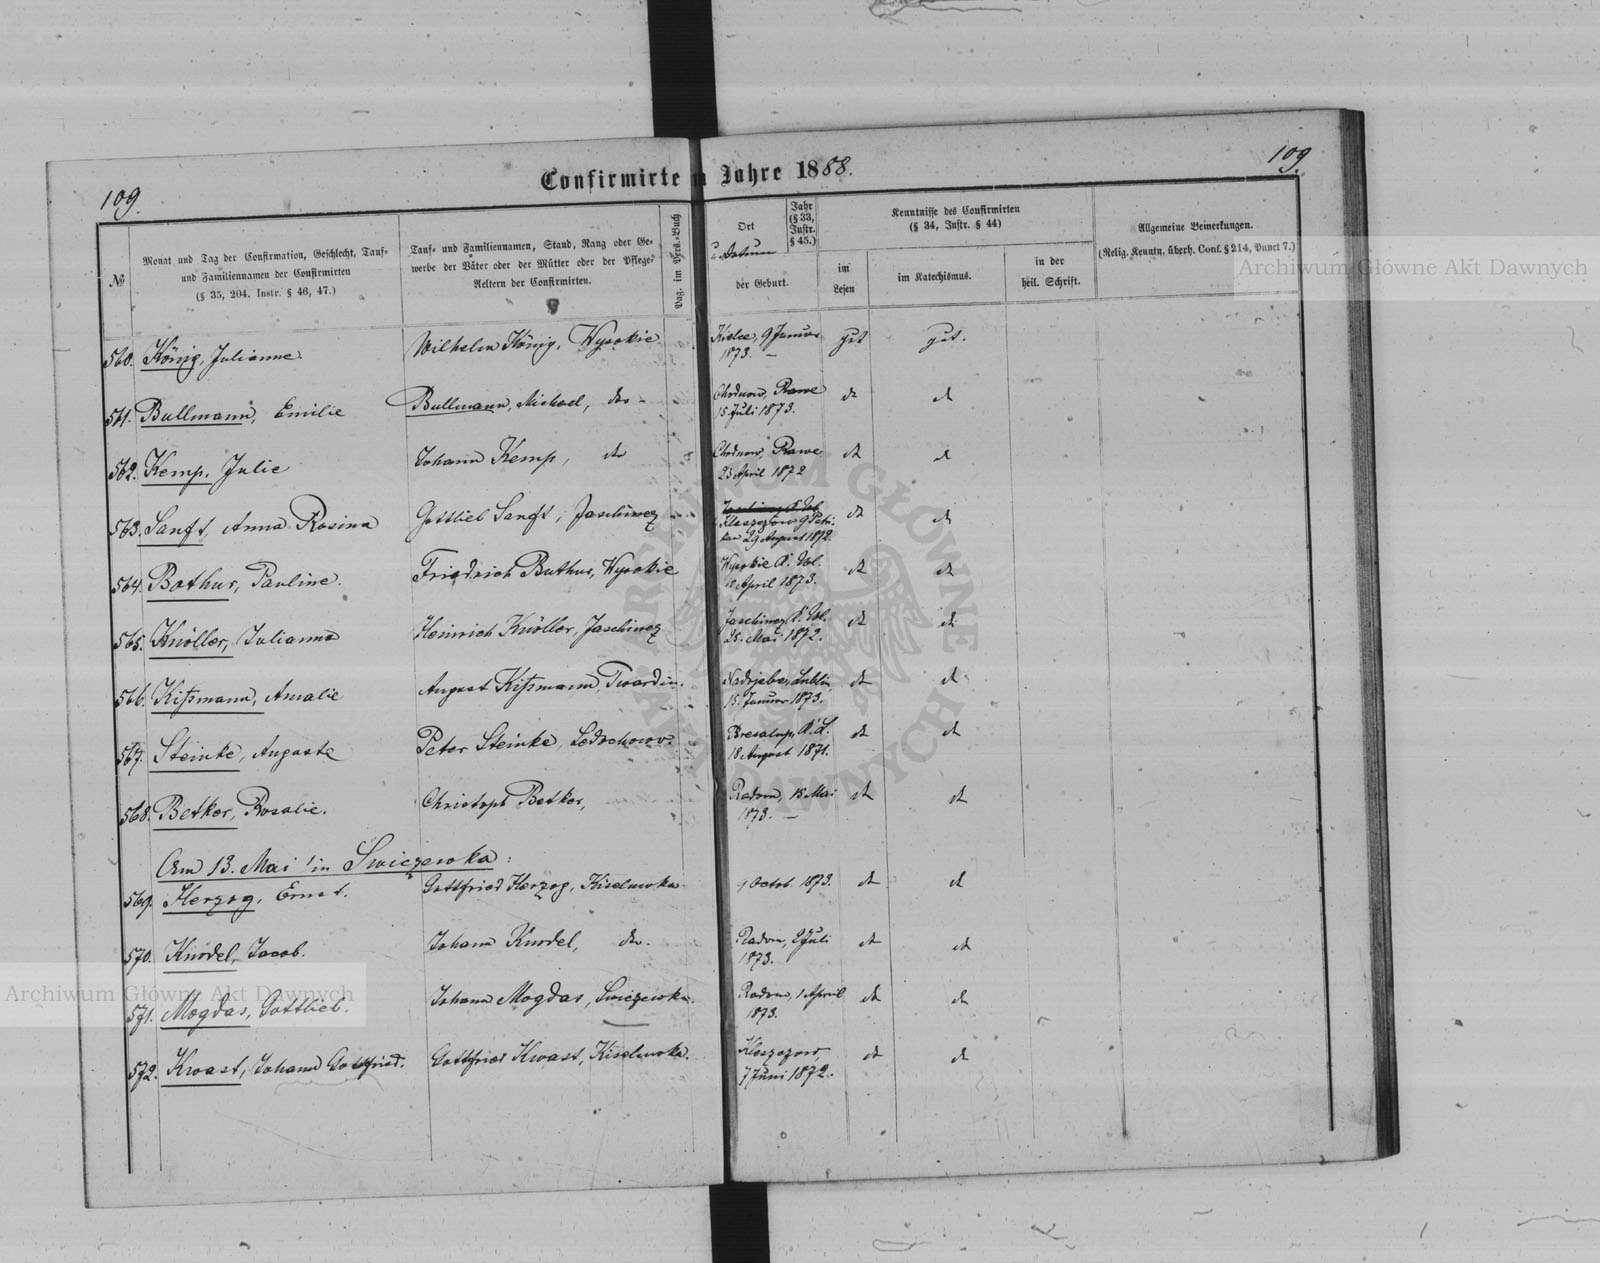 109.
109.
Confirmirte
m Jahre 1888.
№
Monat und Tag der Confirmation, Geschlecht, Tauf-
und Familiennamen der Confirmirten
(§ 35, 204. Instr. § 46, 47.)
Tauf- und Familiennamen, Stand, Rang oder Ge-
werbe der Väter oder der Mütter oder der Pflege-
Aeltern der Confirmirten.
Pag. im Pers.-Buch
Ort
u. Datum
der Geburt.
Jahr
(§ 33,
Instr.
§ 45.)
Kenntnisse des Confirmirten
(§ 34, Instr. § 44)
im
Lesen
im Katechismus.
in der
heil. Schrift.
Allgemeine Bemerkungen.
(Relig. Kenntn. überh. Conf. § 214, Punct 7.)
Archiwum Główne Akt Dawnych
560. König, Julianne. Wilhelm König, Wysokie Kielce, 9 Januar gut gut.
1873. —
561. Bullmann, Emilie Bullmann, Michael, do - Chodnow, Rawe dt dt
15 Juli 1873.
562. Kemp, Julie Johann Kemp, do Chodnow, Rawe dt dt
23 April 1872
563. Sanft, Anna Rosina Gottlieb Sanft, Jaschinez dt dt
Kleszczow, Petri-
kau 29 August 1872.
564. Bothur, Pauline. Friedrich Buthur, Wysokie Wysokie K. Vol. dt dt
April 1873.
565. Knöller, Julianna Heinrich Knöller, Jaschinez Jaschinez K. Vol. dt dt
25. Mai 1872.
566. Kißmann, Amalie August Kißmann, Twardin. Lublin, dt dt
15. Januar 1873.
567. Steinke, Auguste Peter Steinke, Ledochow. K. L. dt dt
18 August 1871.
568. Betker, Rosalie. Christoph Betker, Radom, 15 Mai dt dt
1873. —
Am 13. Mai in Swiczewka:
569. Herzog, Ernst. Gottfried Herzog, Kiselewka 1 Octob. 1873. dt dt
570. Knodel, Jacob. Johann Knodel, do. Radom, 2 Juli dt dt
1873.
571. Mogdas, Gottlieb. Johann Mogdas, Swiczewka. Radom, 1 April dt dt
1873.
572. Kwast, Johann Gottfried. Gottfried Kwast, Kiselewka. Kleszczow, dt dt
7 Juni 1872.
Archiwum Główne Akt Dawnych
ARCHIWUM GŁÓWNE
AKT DAWNYCH